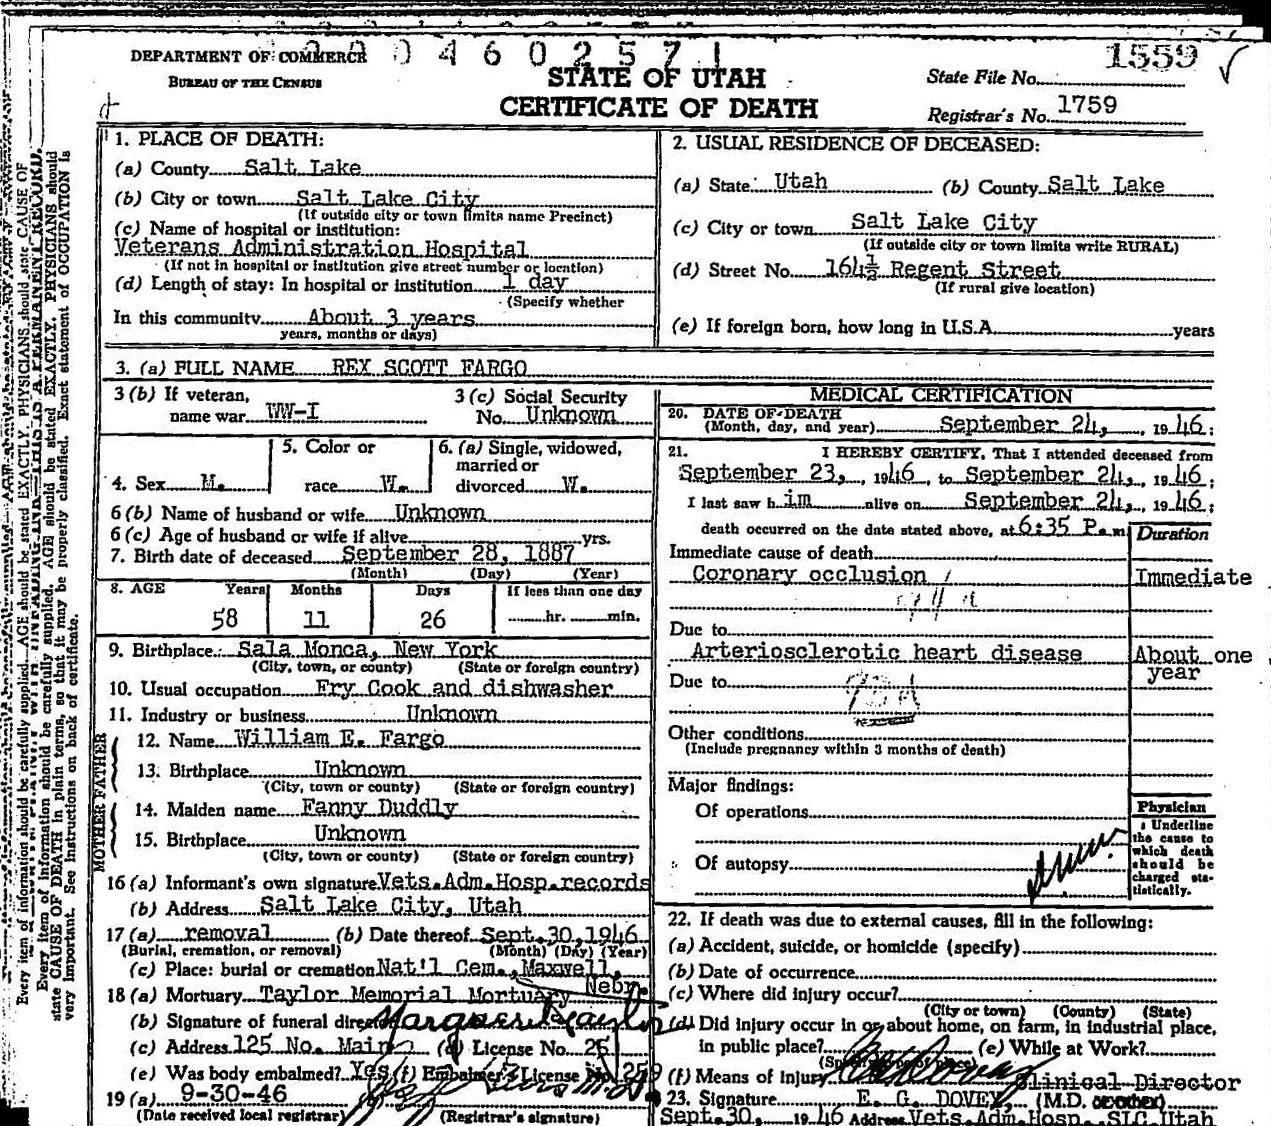 DEPARTMENT OF COMMERCE
0 4 6 0 2 5 7 1
1559
BUREAU OF THE CENSUS
STATE OF UTAH
CERTIFICATE OF DEATH
State File No.
Registrar's No. 1759
1. PLACE OF DEATH:
(a) County Salt Lake
(b) City or town Salt Lake City
(If outside city or town limits name Precinct)
(c) Name of hospital or institution:
Veterans Administration Hospital
(If not in hospital or institution give street number or location)
(d) Length of stay: In hospital or institution 1 day
(Specify whether
In this community About 3 years
years, months or days)
2. USUAL RESIDENCE OF DECEASED:
(a) State: Utah (b) County Salt Lake
(c) City or town Salt Lake City
(If outside city or town limits write RURAL)
(d) Street No. 164½ Regent Street
(If rural give location)
(e) If foreign born, how long in U.S.A. years
3. (a) FULL NAME REX SCOTT FARGO
3 (b) If veteran, name war WW-I
3 (c) Social Security No. Unknown
4. Sex M.
5. Color or race W.
6. (a) Single, widowed, married or divorced W.
6 (b) Name of husband or wife Unknown
6 (c) Age of husband or wife if alive yrs.
7. Birth date of deceased September 28, 1887
(Month) (Day) (Year)
8. AGE Years Months Days If less than one day
58 11 26 hr. min.
9. Birthplace: Sala Monca, New York
(City, town, or county) (State or foreign country)
10. Usual occupation Fry Cook and dishwasher
11. Industry or business Unknown
FATHER
12. Name William E. Fargo
13. Birthplace Unknown
(City, town or county) (State or foreign country)
MOTHER
14. Maiden name Fanny Duddly
15. Birthplace Unknown
(City, town or county) (State or foreign country)
16 (a) Informant's own signature Vets.Adm.Hosp.records
(b) Address Salt Lake City, Utah
17 (a) removal (b) Date thereof Sept.30,1946
(Burial, cremation, or removal) (Month) (Day) (Year)
(c) Place: burial or cremation Nat'l Cem., Maxwell, Nebr.
18 (a) Mortuary Taylor Memorial Mortuary
(b) Signature of funeral director Marguerite Taylor
(c) Address 125 No. Main (d) License No. 25
(e) Was body embalmed? Yes (f) Embalmer's License No. 259
19 (a) 9-30-46
(Date received local registrar) (Registrar's signature)
MEDICAL CERTIFICATION
20. DATE OF DEATH
(Month, day, and year) September 24, 1946;
21. I HEREBY CERTIFY, That I attended deceased from
September 23, 1946, to September 24, 1946;
I last saw him alive on September 24, 1946;
death occurred on the date stated above, at 6:35 P.m
Duration
Immediate cause of death
Coronary occlusion Immediate
Due to
Arteriosclerotic heart disease About one year
Due to
Other conditions
(Include pregnancy within 3 months of death)
Major findings:
Of operations
Of autopsy
Physician
Underline the cause to which death should be charged statistically.
22. If death was due to external causes, fill in the following:
(a) Accident, suicide, or homicide (specify)
(b) Date of occurrence
(c) Where did injury occur?
(City or town) (County) (State)
(d) Did injury occur in or about home, on farm, in industrial place,
in public place? (e) While at Work?
(f) Means of injury Clinical Director
23. Signature E. G. DOVEY, (M.D. or other)
Sept. 30, 1946 Address Vets.Adm.Hosp., SLC,Utah
Every item of information should be carefully supplied. AGE should be stated EXACTLY. PHYSICIANS should
state CAUSE OF DEATH in plain terms, so that it may be properly classified. Exact statement of OCCUPATION is
very important. See instructions on back of certificate.